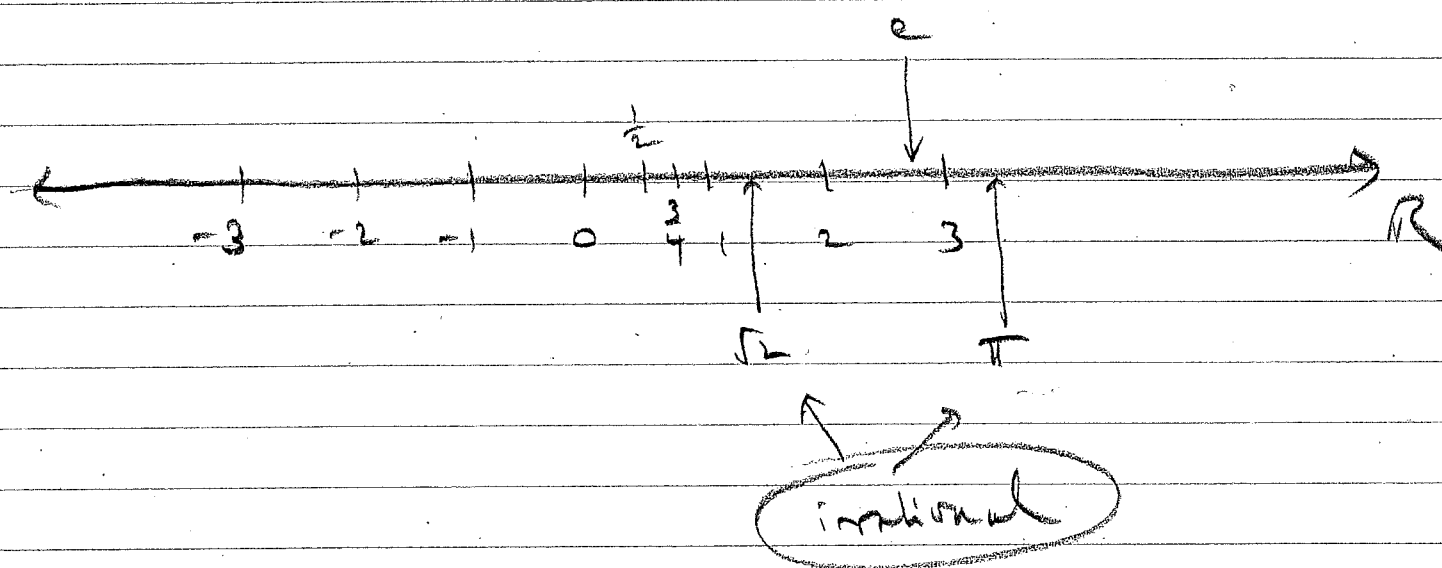 e
1/2
-3 -2 -1 0 3/4 1 2 3 R
√2 π
irrational